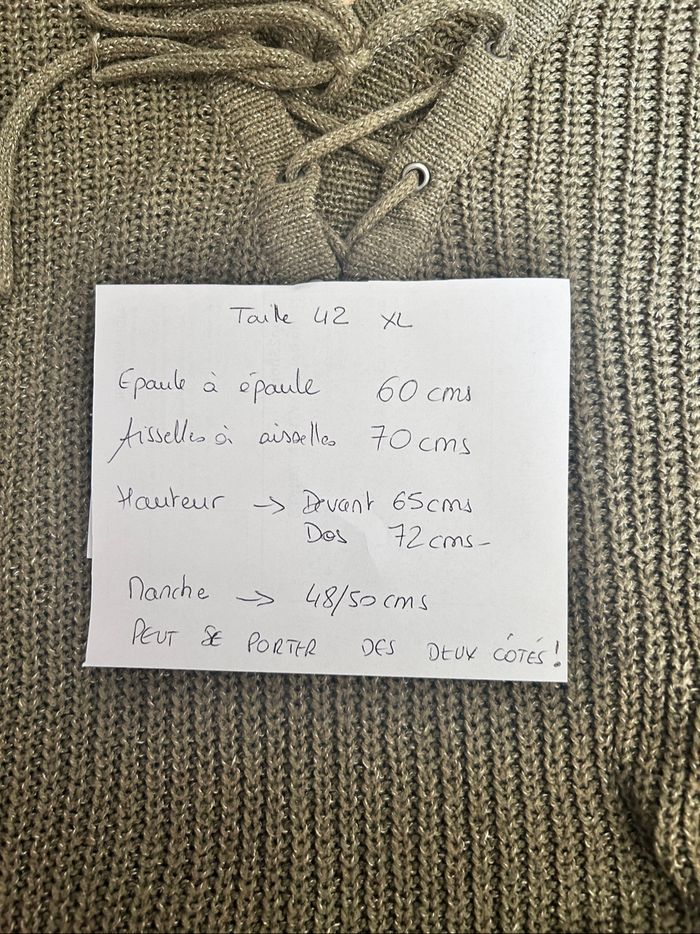 Taille 42 XL
Epaule à épaule 60 cms
Aisselles à aisselles 70 cms
Hauteur → Devant 65 cms
Dos 72 cms-
Manche → 48/50 cms
PEUT SE PORTER DES DEUX CÔTÉS!